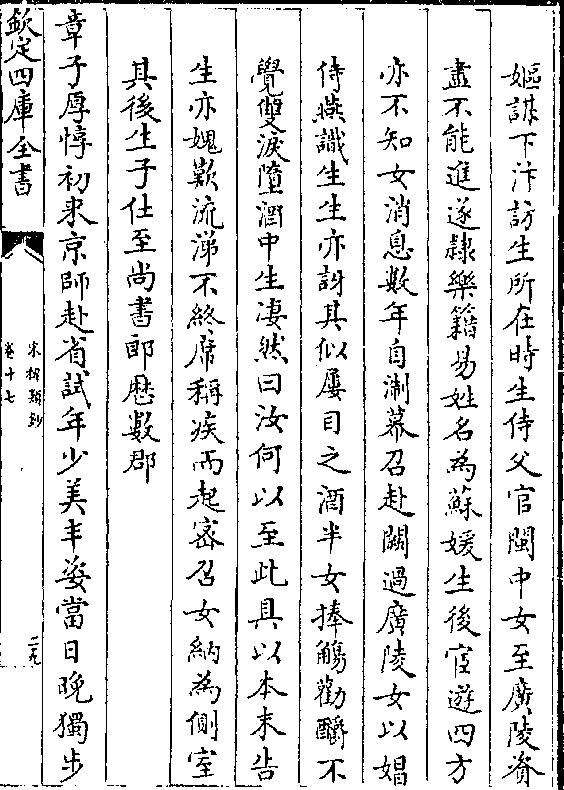 嫗謀下汴訪生所在時生侍父官閩中女至廣陵資
盡不能進遂隸樂籍易姓名為蘇媛生後宦遊四方
亦不知女消息數年自淛幕召赴闕過廣陵女以娼
侍燕識生生亦訝其似屢目之酒半女捧觴勸釂不
覺雙淚墮酒中生凄然曰汝何以至此具以本末告
生亦媿歎流涕不終席稱疾而起密召女納為側室
其後生子仕至尚書郎歴數郡
章子厚惇初來京師赴省試年少美丰姿當日晚獨步
欽定四庫全書
宋稗類鈔
卷十七
二九